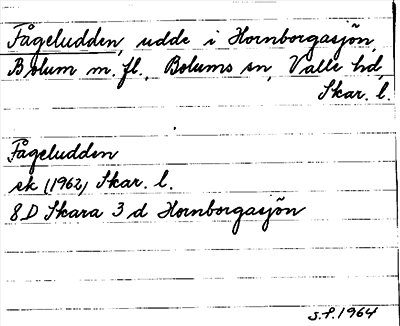 Fågeludden, udde i Hornborgasjön,
Bolum m. fl., Bolums sn, Valle hd,
Skar. l.
Fågeludden
ek (1962) Skar. l.
8D Skara 3 d Hornborgasjön
S.F. 1964